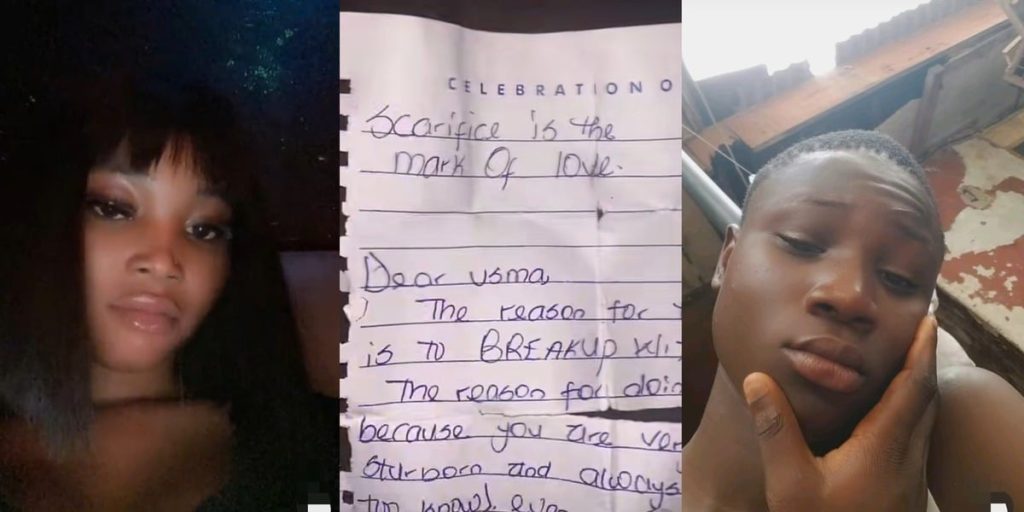 CELEBRATION O
Scarifice is the
mark Of love.
Dear usma,
The reason for
is to BREAKUP wit
The reason for doin
because you are ver
Sturborn and always
know